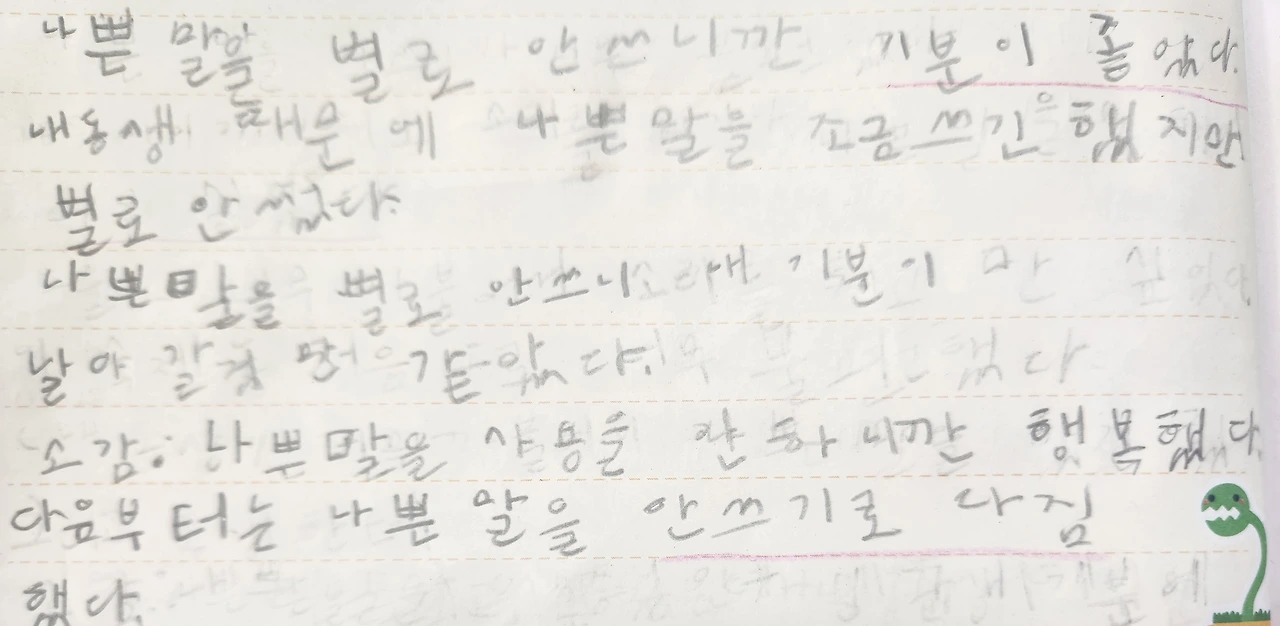 나쁜 말을 별로 안 쓰니깐 기분이 좋았다.
내동생 때문에 나쁜말을 조금 쓰긴 했지만
별로 안 썼다.
나쁜말을 별로 안쓰니 기분이
날아 갈것 같았다.
소감: 나쁜말을 사용을 안 하니깐 행복했다.
다음부터는 나쁜 말을 안쓰기로 다짐
했다.